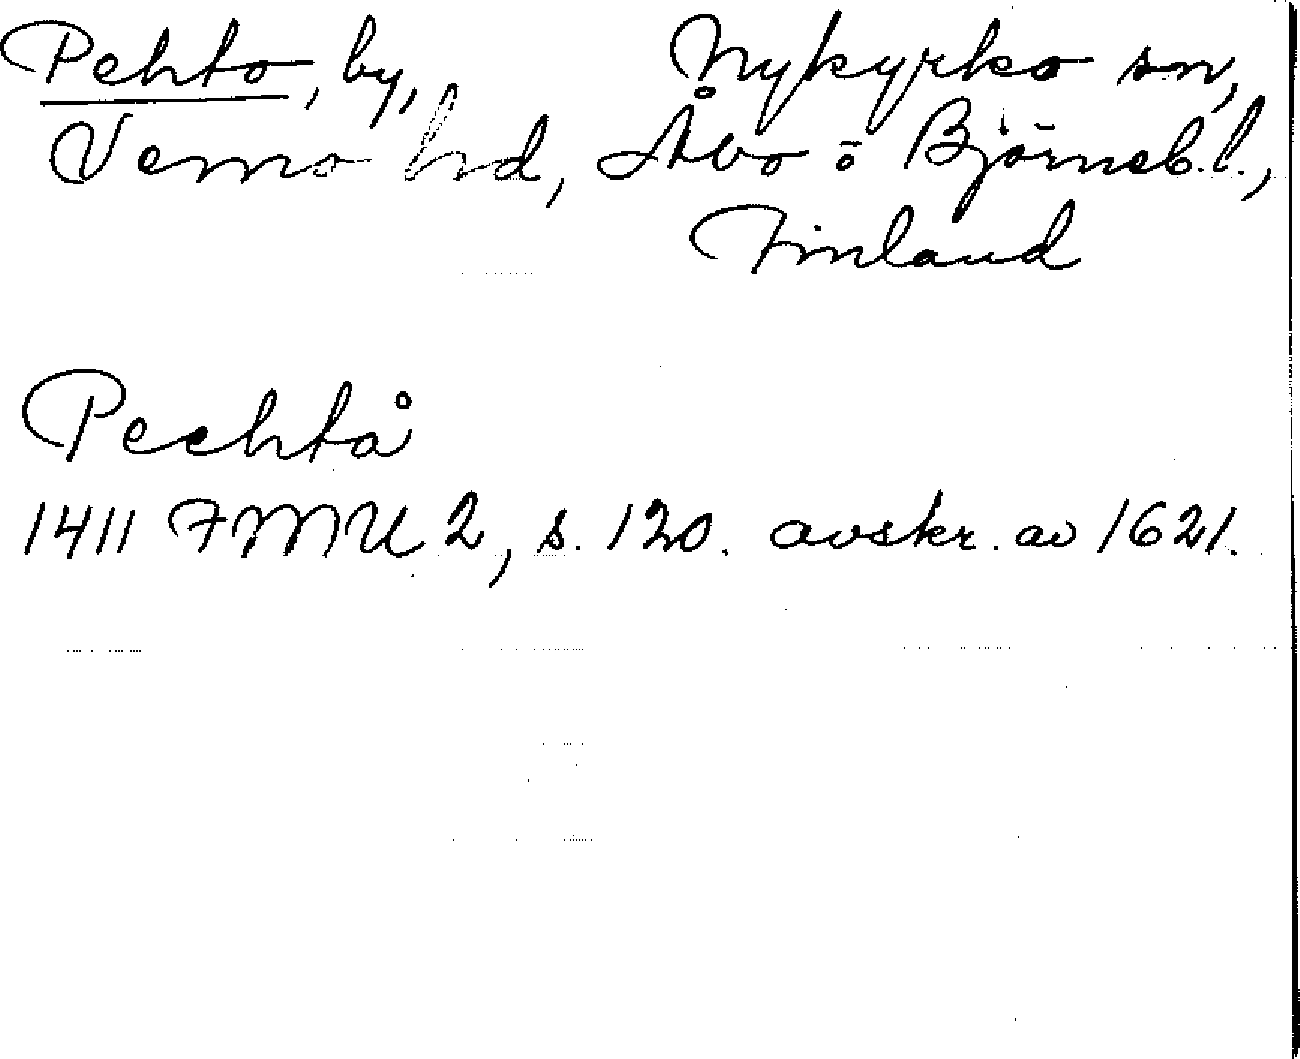 Pehto, by, Nykyrko sn,
Vemo hrd, Åbo o Björneb. l.,
Finland
Pechtå
1411 FMU 2, s. 120. avskr. av 1621.